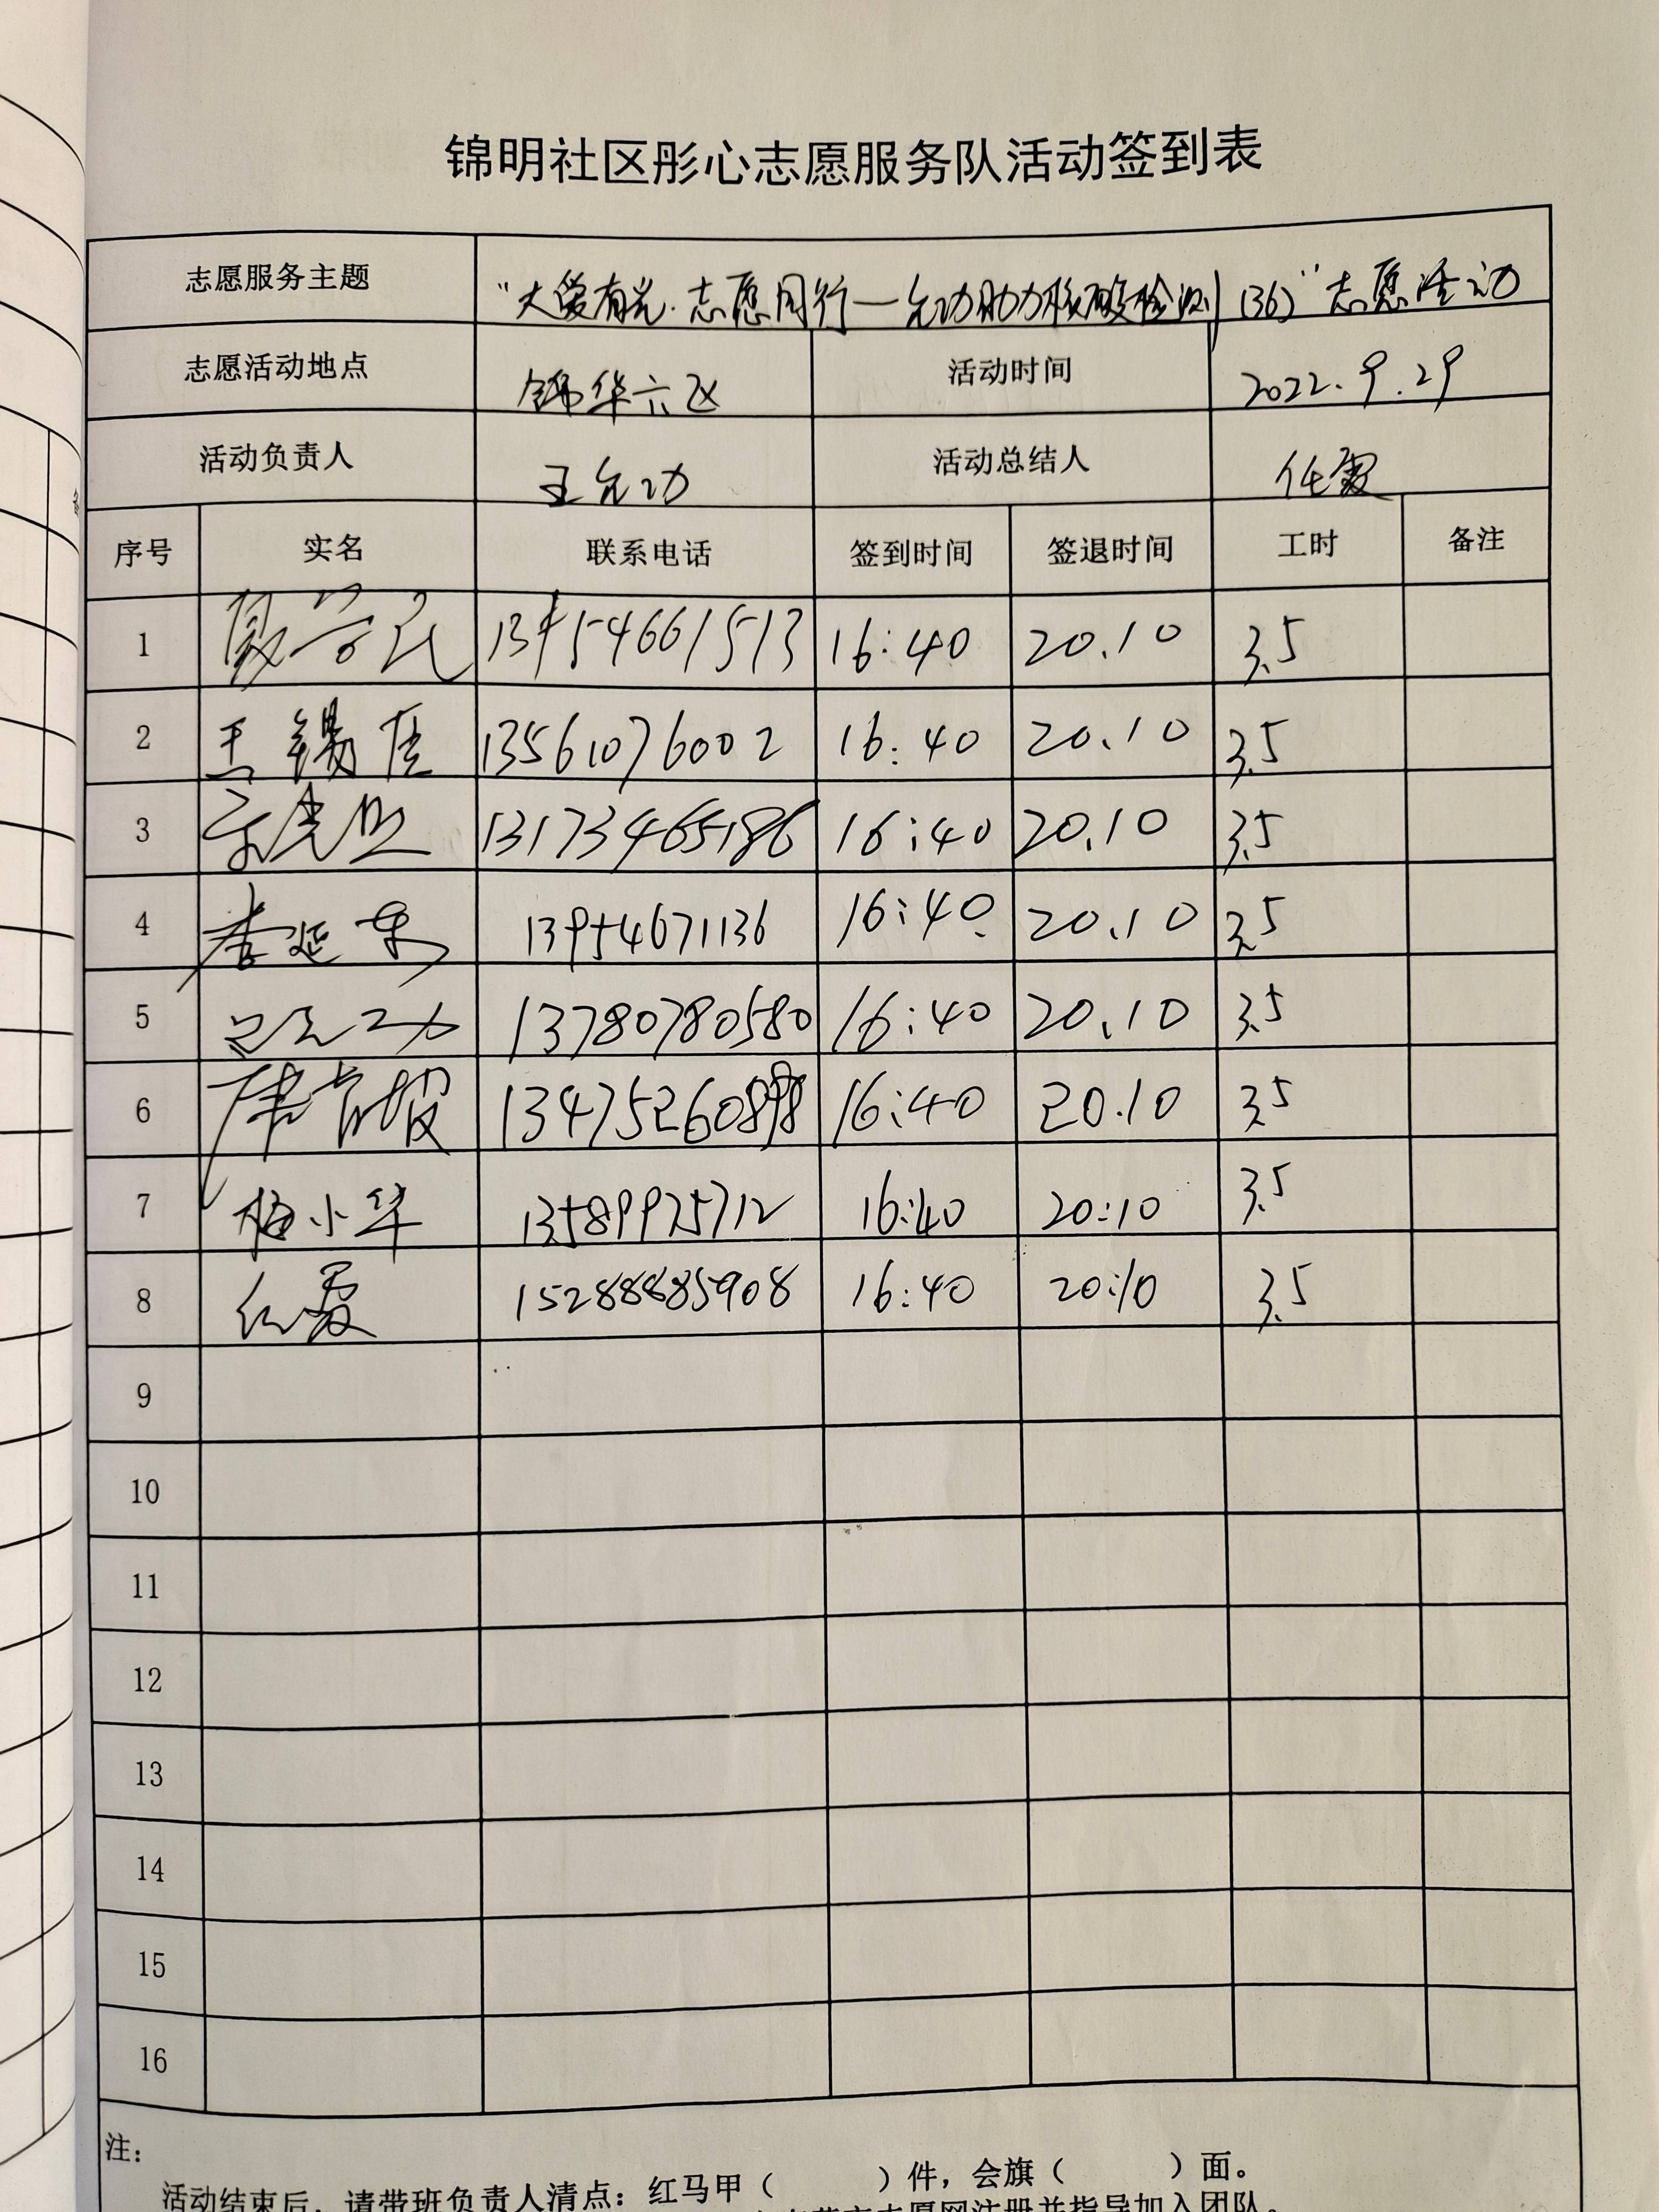 锦明社区彤心志愿服务队活动签到表
志愿服务主题 "大爱有光·志愿同行—允功助力核酸检测(36)"志愿活动
志愿活动地点 锦华六区 活动时间 2022.9.29
活动负责人 王允功 活动总结人 任霞
序号 实名 联系电话 签到时间 签退时间 工时 备注
1 13954661513 16:40 20.10 3.5
2 王锡 13561076002 16:40 20.10 3.5
3 13173465186 16:40 20.10 3.5
4 李延东 13954671136 16:40 20.10 3.5
5 王允功 13780780580 16:40 20.10 3.5
6 16:40 20.10 3.5
7 杨小华 13589975712 16:40 20:10 3.5
8 任霞 15288885908 16:40 20:10 3.5
9
10
11
12
13
14
15
16
注：
活动结束后，请带班负责人清点：红马甲（ ）件，会旗（ ）面。
志愿网注册并指导加入团队。